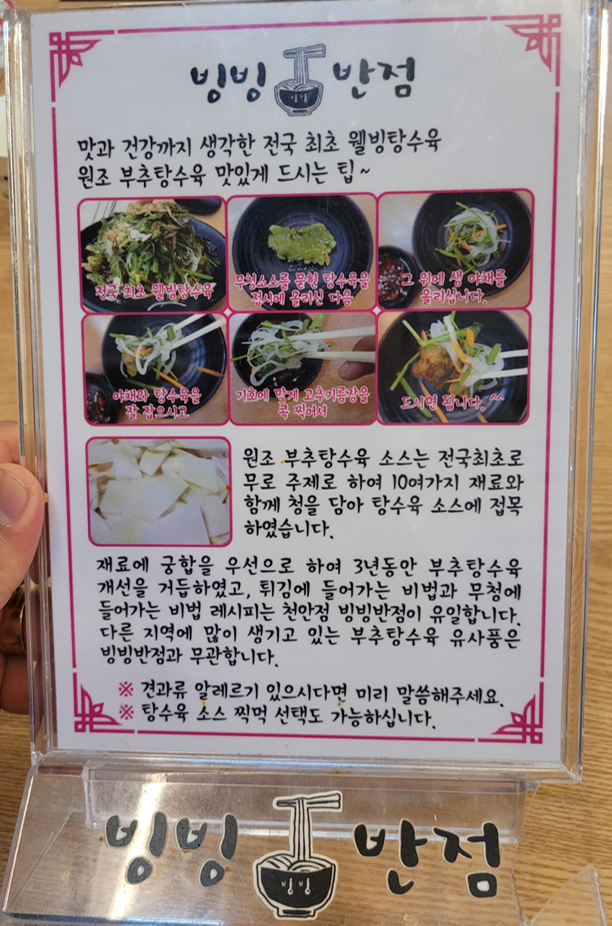 빙빙 반점
맛과 건강까지 생각한 전국 최초 웰빙탕수육
원조 부추탕수육 맛있게 드시는 팁~
전국 최초 웰빙탕수육
무청소스를 묻힌 탕수육을
접시에 올리신 다음
그 위에 생 야채를
올리십니다.
야채와 탕수육을
잘 잡으시고
기호에 맞게 고추기름장을
콕 찍어서
드시면 됩니다. ^^
원조 부추탕수육 소스는 전국최초로
무로 주제로 하여 10여가지 재료와
함께 청을 담아 탕수육 소스에 접목
하였습니다.
재료에 궁합을 우선으로 하여 3년동안 부추탕수육
개선을 거듭하였고, 튀김에 들어가는 비법과 무청에
들어가는 비법 레시피는 천안점 빙빙반점이 유일합니다.
다른 지역에 많이 생기고 있는 부추탕수육 유사품은
빙빙반점과 무관합니다.
※ 견과류 알레르기 있으시다면 미리 말씀해주세요.
※ 탕수육 소스 찍먹 선택도 가능하십니다.
빙빙 반점
빙빙